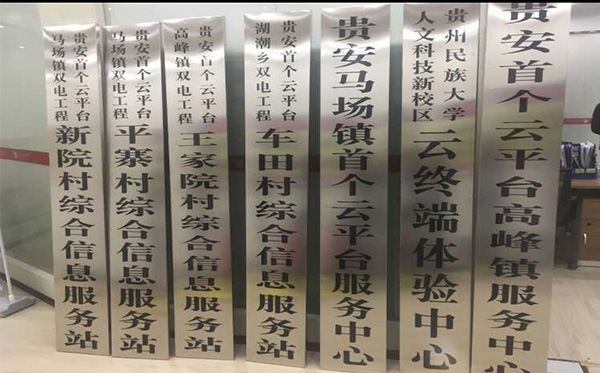 贵安首个云平台
马场镇双电工程
新院村综合信息服务站
贵安首个云平台
马场镇双电工程
平寨村综合信息服务站
贵安首个云平台
高峰镇双电工程
王家院村综合信息服务站
贵安首个云平台
湖潮乡双电工程
车田村综合信息服务站
贵安马场镇首个云平台服务中心
贵州民族大学
人文科技新校区
云终端体验中心
贵安首个云平台高峰镇服务中心